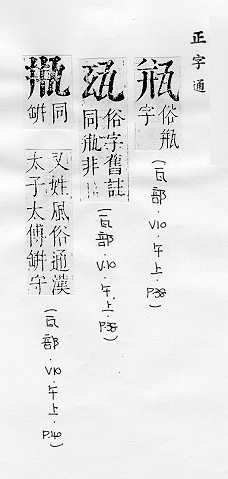 正字通
俗瓶
字
(瓦部.V10.午上.P38)
俗字舊註
同瓶非
(瓦部.V.10.午.上.P.38)
甁
同
缾
又姓風俗通漢
太子太傅缾守
(瓦部.V10.午上.P.40)